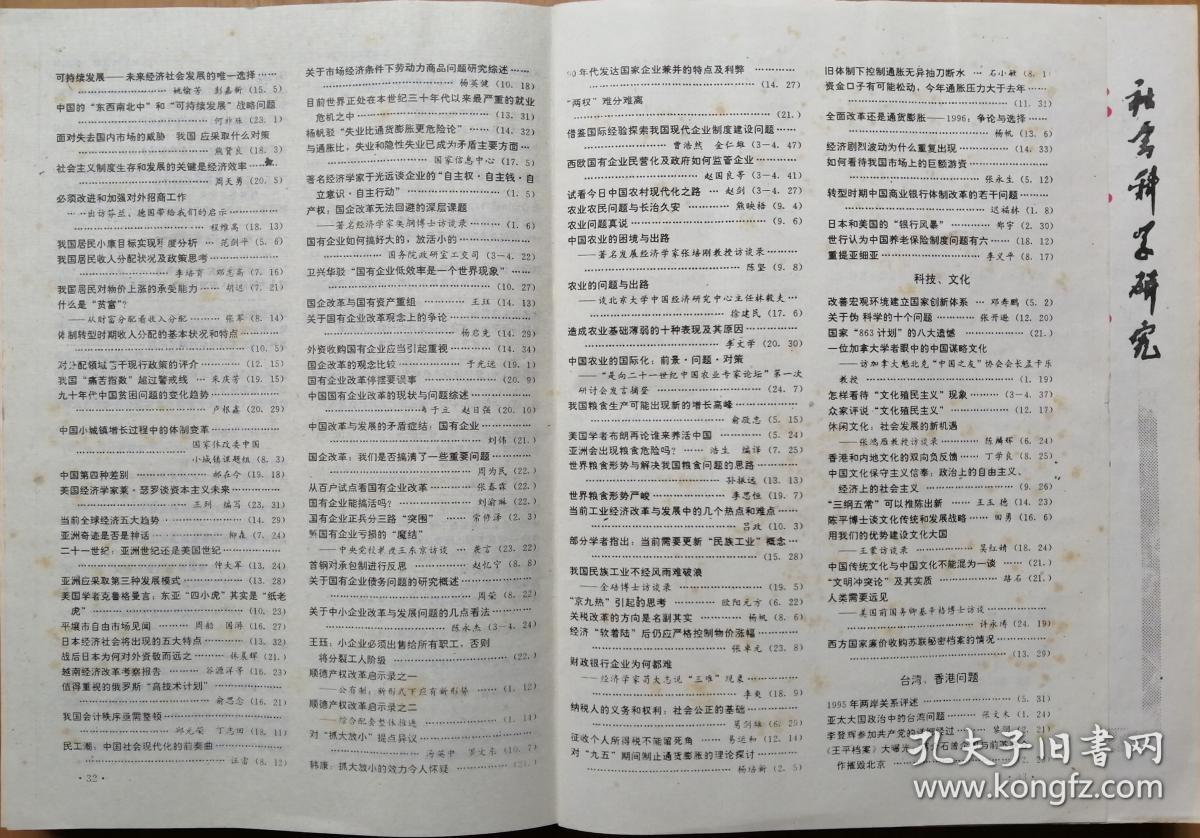 可持续发展——未来经济社会发展的唯一选择……
……姚愉芳 彭嘉新 (15. 5)
中国的“东西南北中”和“可持续发展”战略问题
……何祚庥 (23. 1)
面对失去国内市场的威胁 我国应采取什么对策
……熊贤良 (18. 3)
社会主义制度生存和发展的关键是经济效率……
……周天勇 (20. 5)
必须改进和加强对外招商工作
……出访芬兰、德国带给我们的启示……
……程维高 (18. 13)
我国居民小康目标实现 度分析 …… 范剑平 (5. 6)
我国居民收入分配状况及政策思考……
……李培育 邓志高 (7. 16)
我国居民对物价上涨的承受能力…… 胡迟 (7. 21)
什么是“贫富”?
——从财富分配看收入分配…… 张军 (8. 14)
体制转型时期收入分配的基本状况和特点……
……(10. 5)
对分配领域若干现行政策的评介……(12. 15)
我国“痛苦指数”超过警戒线 …… 朱庆芳 (19. 15)
九十年代中国贫困问题的变化趋势……
……卢根鑫 (20. 29)
中国小城镇增长过程中的体制变革……
……国家体改委中国
小城镇课题组 (8. 3)
中国第四种差别 …… 郝在今 (19. 18)
美国经济学家莱·瑟罗谈资本主义未来……
……王列 编写 (23. 31)
当前全球经济五大趋势……(14. 29)
亚洲奇迹是否是神话 …… 柳森 (7. 24)
二十一世纪:亚洲世纪还是美国世纪……
……仲大军 (13. 24)
亚洲应采取第三种发展模式……(13. 28)
美国学者克鲁格曼言:东亚“四小虎”其实是“纸老
虎”……(10. 23)
平壤市自由市场见闻 …… 周船 国游 (16. 27)
日本经济社会将出现的五大特点……(13. 32)
战后日本为何对外资敬而远之…… 林晨辉 (21. )
越南经济改革考察报告 …… 谷源洋等 (16. 23)
值得重视的俄罗斯“高技术计划”……
……俞思念 (16. 21)
我国会计秩序亟需整顿……
……邱元荣 丁志田 (18. 11)
民工潮:中国社会现代化的前奏曲……
……汪雷 (8. 12)
· 32 ·
关于市场经济条件下劳动力商品问题研究综述……
……杨英健 (10. 18)
目前世界正处在本世纪三十年代以来最严重的就业
危机之中……(13. 31)
杨帆驳“失业比通货膨胀更危险论”……(14. 32)
与通胀比,失业和隐性失业已成为矛盾主要方面……
……国家信息中心 (17. 5)
著名经济学家于光远谈企业的“自主权·自主钱·自
立意识·自主行动”……(1. 5)
产权:国企改革无法回避的深层课题
——著名经济学家吴 纲博士访谈录……(1. 6)
国有企业如何搞好大的,放活小的……
……国务院政研室工交司 (3—4. 22)
卫兴华驳“国有企业低效率是一个世界现象”……
……(10. 27)
国企改革与国有资产重组 …… 王珏 (14. 13)
关于国有企业改革观念上的争论……
……杨启先 (14. 29)
外资收购国有企业应当引起重视……(14. 34)
国企改革的观念比较…… 于光远 (19. 1)
国有企业改革停摆要误事……(20. 9)
中国国有企业改革的现状与问题综述……
…… 于立 赵日强 (20. 10)
中国改革与发展的矛盾症结:国有企业……
……刘伟 (21. )
国企改革:我们是否搞清了一些重要问题……
……周为民 (22. )
从百户试点看国有企业改革…… 张春霖 (22. )
国有企业能搞活吗?…… 刘渝琳 (22. )
国有企业正兵分三路“突围”…… 常修泽 (2. 3)
 国有企业亏损的“魔结”
——中央党校教授王东京访谈 …… 袭言 (23. 22)
首钢对承包制进行反思…… 赵忆宁 (8. 8)
关于国有企业债务问题的研究概述……
……周荣 (8. 22)
关于中小企业改革与发展问题的几点看法……
……陈永杰 (3—4. 24)
王珏:小企业必须出售给所有职工,否则
将分裂工人阶级……(22. )
顺德产权改革启示录之一
——公有制:新形式下应有新形势……(1. 12)
顺德产权改革启示录之二
——综合配套整体推进……(1. 14)
对“抓大放小”提点异议……
……汤英中 罗文东 (10. 7)
韩康:抓大放小的效力令人怀疑……(21. )
90年代发达国家企业兼并的特点及利弊……
……(14. 27)
“两权”难分难离……
……(21. )
借鉴国际经验探索我国现代企业制度建设问题……
……曹浩然 金仁雄 (3—4. 47)
西欧国有企业民营化及政府如何监管企业……
……赵国良等 (3—4. 41)
试看今日中国农村现代化之路 …… 赵剑 (3—4. 27)
农业农民问题与长治久安 …… 熊映梧 (9. 4)
农业问题真说……(9. 6)
中国农业的困境与出路
——著名发展经济学家张培刚教授访谈录……
……陈坚 (9. 8)
农业的问题与出路
——谈北京大学中国经济研究中心主任林毅夫…
……徐建民 (17. 6)
造成农业基础薄弱的十种表现及其原因……
……李文学 (20. 30)
中国农业的国际化:前景·问题·对策
——“走向二十一世纪中国农业专家论坛”第一次
研讨会发言摘登……(24. 7)
我国粮食生产可能出现新的增长高峰……
……俞敬忠 (5. 15)
美国学者布朗再论谁来养活中国……(5. 24)
亚洲会出现粮食危险吗?…… 浩生 编译 (7. 25)
世界粮食形势与解决我国粮食问题的思路……
……孙振远 (13. 13)
世界粮食形势严峻…… 李思恒 (19. 7)
当前工业经济改革与发展中的几个热点和难点……
……吕政 (10. 3)
部分学者指出:当前需要更新“民族工业”概念…
……(15. 28)
我国民族工业不经风雨难破浪
——金碚博士访谈录……(19. 5)
“京九热”引起的思考…… 欧阳元方 (6. 22)
关税改革的方向是名副其实…… 杨帆 (8. 6)
经济“软着陆”后仍应严格控制物价涨幅……
……张卓元 (23. 8)
财政银行企业为何都难
——经济学家苟大志说“三难”现象……
……李爽 (18. 9)
纳税人的义务和权利:社会公正的基础……
……葛剑雄 (6. 29)
征收个人所得税不能留死角 …… 易运和 (12. 14)
对“九五”期间制止通货膨胀的理论探讨……
……杨培新 (2. 5)
旧体制下控制通胀无异抽刀断水 …… 石小敏 (8. 1)
资金口子有可能松动,今年通胀压力大于去年……
……(11. 31)
全面改革还是通货膨胀——1996:争论与选择……
……杨帆 (13. 6)
经济剧烈波动为什么重复出现……(14. 33)
如何看待我国市场上的巨额游资……
……张永生 (5. 12)
转型时期中国商业银行体制改革的若干问题……
……迟福林 (1. 8)
日本和美国的“银行风暴”…… 郑宇 (2. 30)
世行认为中国养老保险制度问题有六……(18. 12)
重提亚细亚…… 李义平 (8. 17)
科技、文化
改善宏观环境建立国家创新体系 …… 邓寿鹏 (5. 2)
关于伪科学的十个问题…… 张开逊 (12. 20)
国家“863计划”的八大遗憾……(21. )
一位加拿大学者眼中的中国谋略文化
——访加拿大魁北克“中国之友”协会会长孟于乐
教授……(1. 19)
怎样看待“文化殖民主义”现象……(3—4. 37)
众家评说“文化殖民主义”……(12. 17)
休闲文化:社会发展的新机遇
——张鸿雁教授访谈录…… 陈麟辉 (6. 24)
香港和内地文化的双向负反馈…… 丁学良 (8. 25)
中国文化保守主义信奉:政治上的自由主义、
经济上的社会主义……(9. 26)
“三纲五常”可以推陈出新 …… 王玉德 (14. 23)
陈平博士谈文化传统和发展战略…… 田勇 (16. 6)
用我们的优势建设文化大国
——王蒙访谈录…… 吴红婧 (18. 24)
中国传统文化与中国文化不能混为一谈……(21. )
“文明冲突论”及其实质…… 路石 (21. )
人类需要远见
——美国前国务卿基辛格博士访谈……
……许永涛 (24. 19)
西方国家廉价收购苏联秘密档案的情况……
……(13. 29)
台湾、香港问题
1995年两岸关系评述……(5. 31)
亚太大国政治中的台湾问题…… 张文木 (1. 24)
李登辉参加共产党的详细经过……(2. 21)
《王平档案》大曝光
作摧毁北京
社会科学研究
孔夫子旧书网
www.kongfz.com